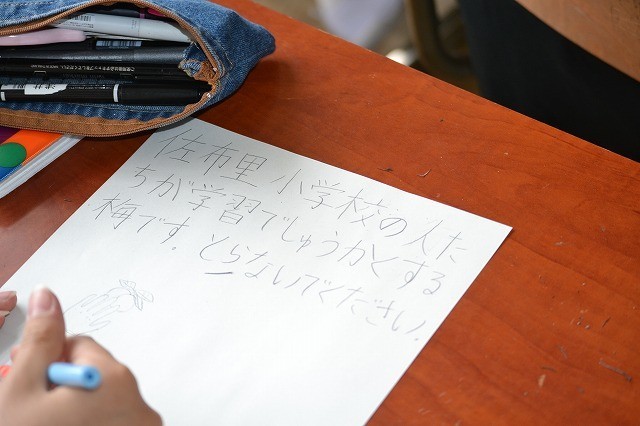 佐布里 小学校の人た
ちが学習でしゅうかくする
梅です。とらないでください。